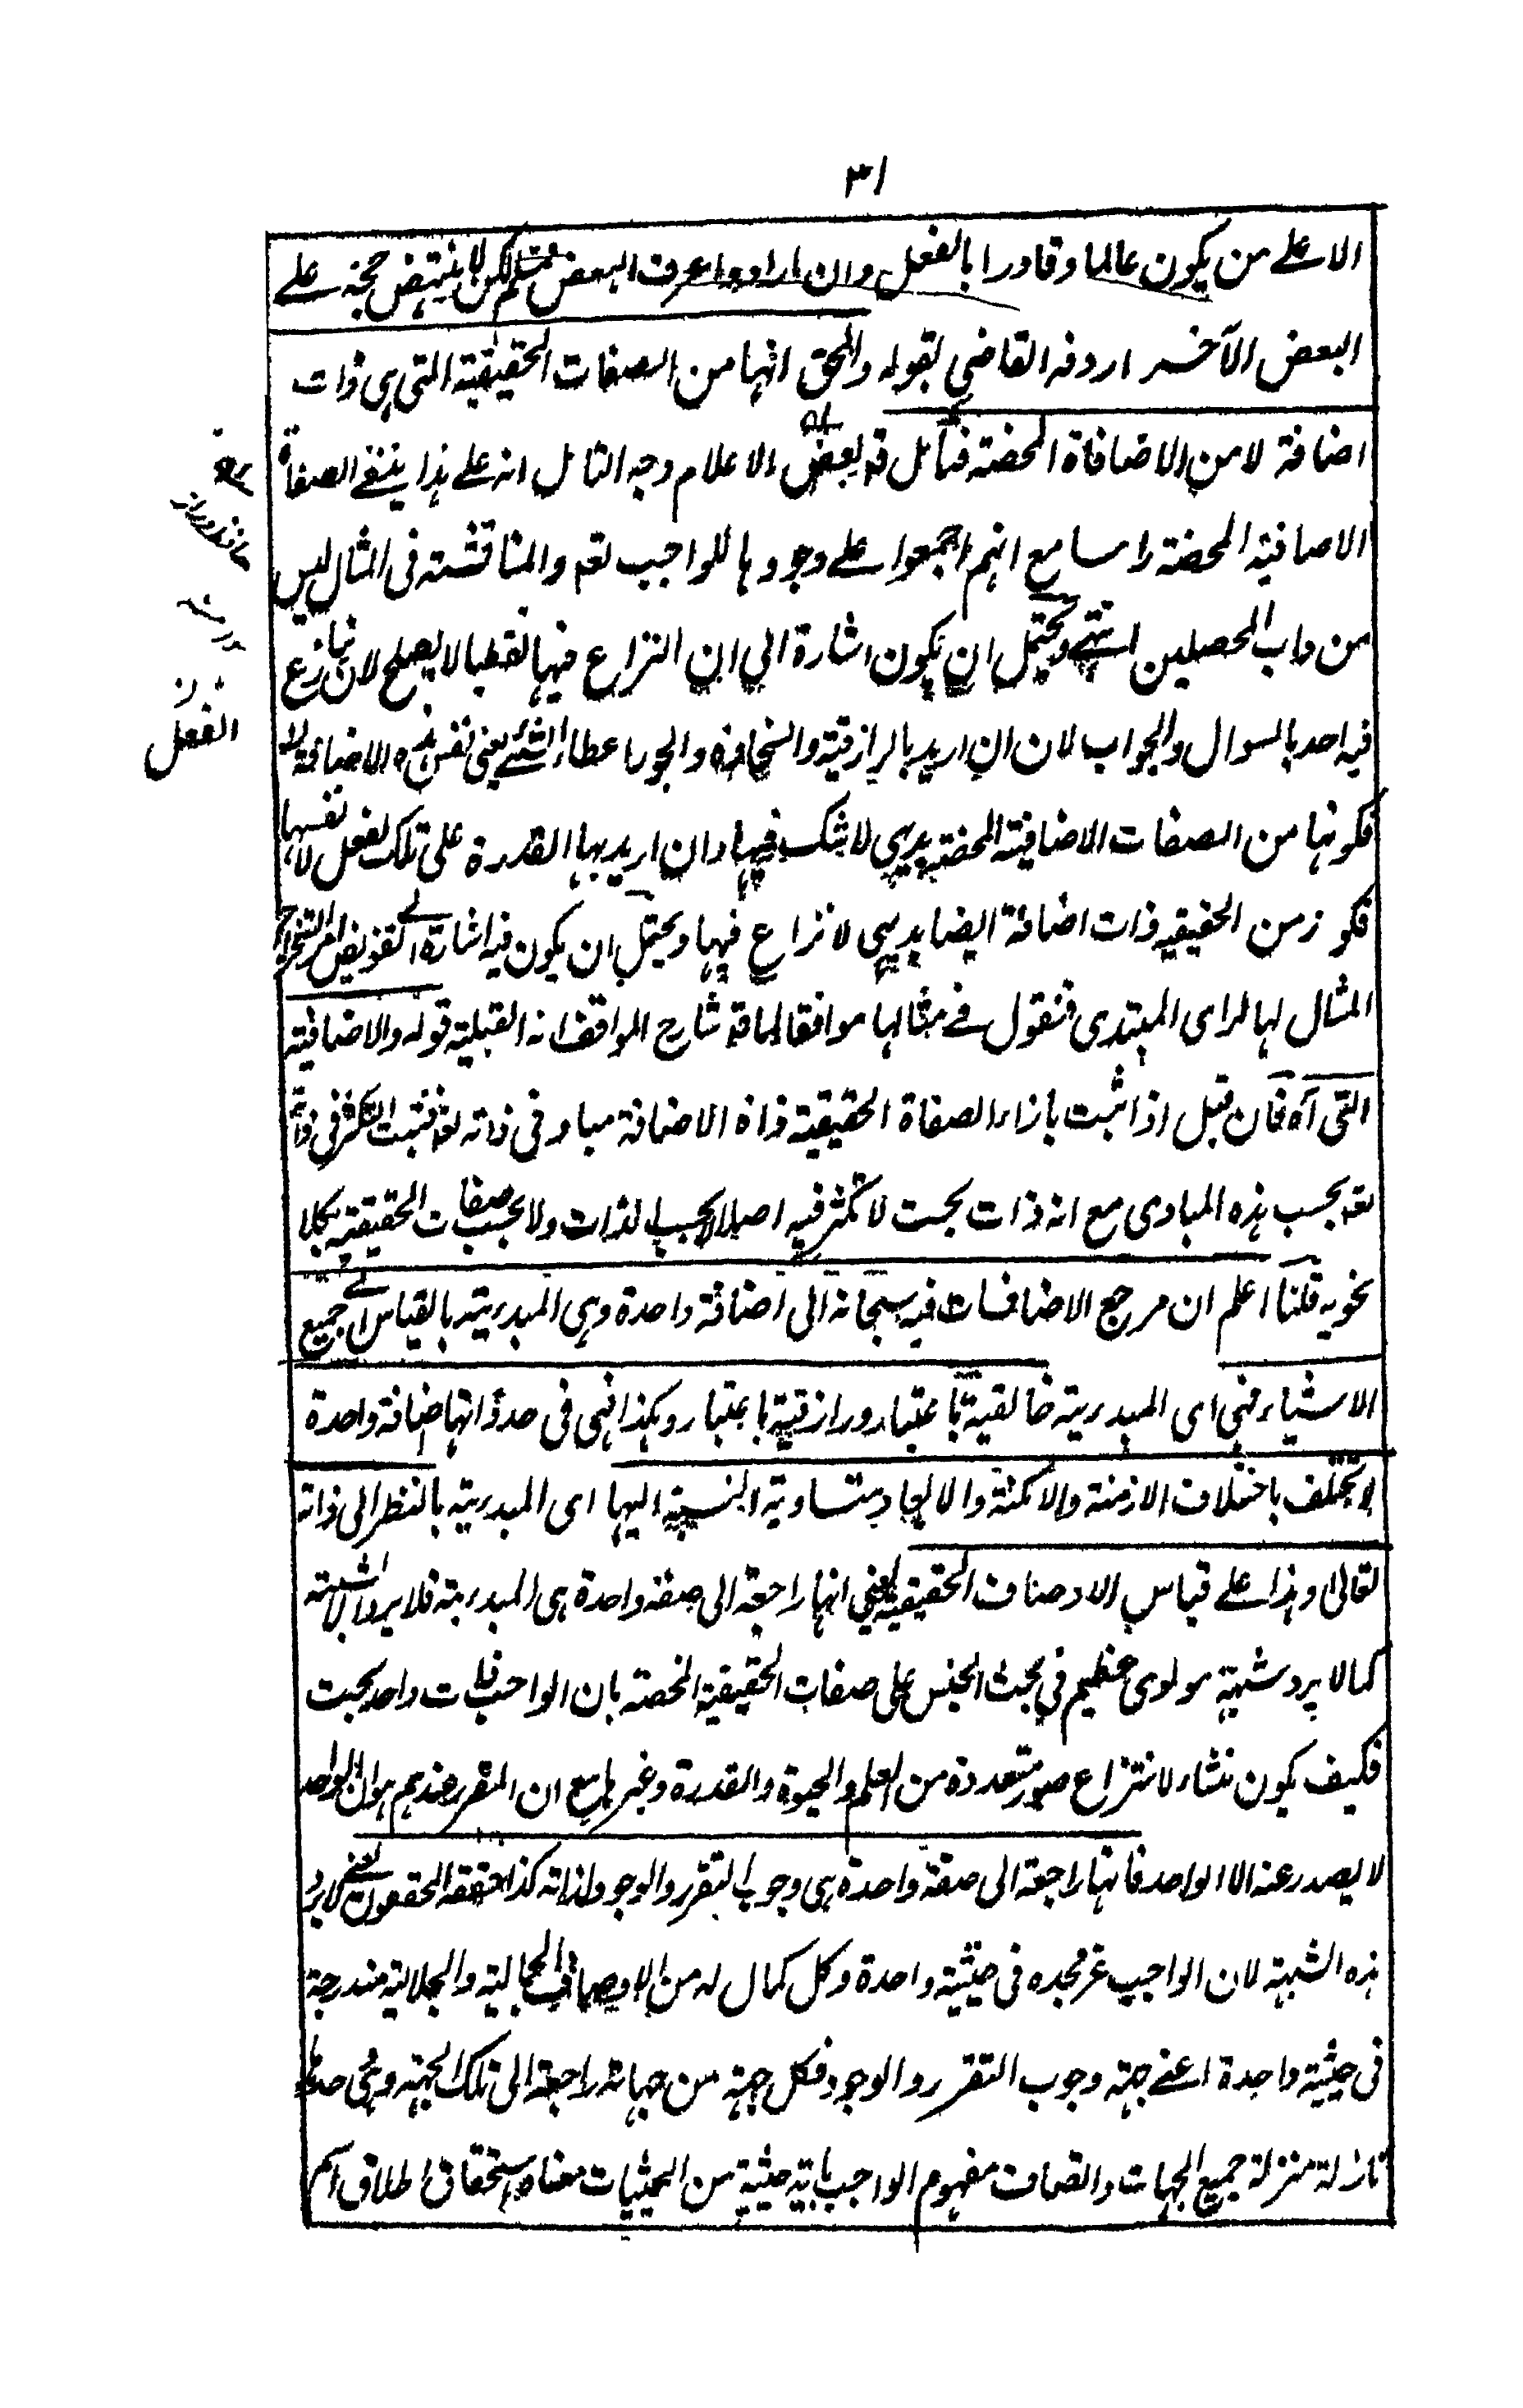 ٣١
الا على من يكون عالما وقادرا بالفعل وان ارادوا عرف البعض فمسلم لكن لا ينتهض حجة على
البعض الآخر اردفه القاضي بقوله والحق انها من الصفات الحقيقية التي هي ذات
اضافة لا من الاضافاة المحضة فتأمل قه بعض الاعلام وجه التامل انه على هذا ينفي الصفاة
الاضافية المحضة راسا مع انهم اجمعوا على وجودها للواجب تعه والمناقشة فى المثال ليس
من داب المحصلين انتهى ويحتمل ان يكون اشارة الى ان النزاع فيها لفظيا لا يصلح لان ينازع
فيه احد بالسوال والجواب لان ان اريد بالرازقية والسخاوة والجود اعطاء الشئ يعنى نفس هذه الاضافة لا
فكونها من الصفات الاضافية المحضة بديهي لا شك فيها وان اريد بها القدرة على تلك الفعل لا نفسها
فكونه من الحقيقيه ذات اضافة ايضا بديهي لا نزاع فيها ويحتمل ان يكون فيه اشارة الى تفويض امر استخراج
المثال لها لراى المبتدى فنقول فے مثالها موافقا لما قه شارح المواقف انه القبلية قوله والاضافية
التى آه فان قيل اذا ثبت بازاء الصفاة الحقيقية ذاة الاضافة مباد فى ذاته تعه فثبت التكثر فى ذاته
تعه بحسب هذه المبادى مع انه ذات بحت لا تكثر فيه اصلا لا بحسب الذات ولا بحسب صفات الحقيقية بكلا
نحويه قلنا اعلم ان مرجع الاضافات فيه سبحانه الى اضافة واحدة وهى المبدءية بالقياس الى جميع
الاشياء فهى اى المبدءية خالقية باعتبار ورازقية باعتبار وهكذا فهى فى حد ذاتها اضافة واحدة
لا تختلف باختلاف الازمنة والامكنة والابعاد متساوية النسبة اليها اى المبدءية بالنظر الى ذاته
تعالى وهذا على قياس الاوصاف الحقيقية يعني انها راجعة الى صفة واحدة هى المبدءية فلا يرد الاشبهة
كما لا يرد شبهة مولوى عظيم في بحث الجنس على صفات الحقيقية المحضة بان الواجب ذات واحد بحت
فكيف يكون منشاء لانتزاع صور متعددة من العلم والحيوة والقدرة وغيرها مع ان المقرر عندهم هو ان الواحد
لا يصدر عنه الا الواحد فانها راجعة الى صفة واحدة هى وجوب التقرر والوجود لذاته كذا حققه المحققون يعنے لا يرد
هذه الشبهة لان الواجب عز مجده فى حيثية واحدة وكل كمال له من الاوصاف الجمالية والجلالية مندرجة
فى حيثية واحدة اعنے جهة وجوب التقرر والوجود فكل جهة من جهاته راجعة الى تلك الجهة وهى وحدها
نازلة منزلة جميع الجهات واتصاف مفهوم الواجب باية حيثية من الحيثيات معناه استحقاق اطلاق اسم
الفعل